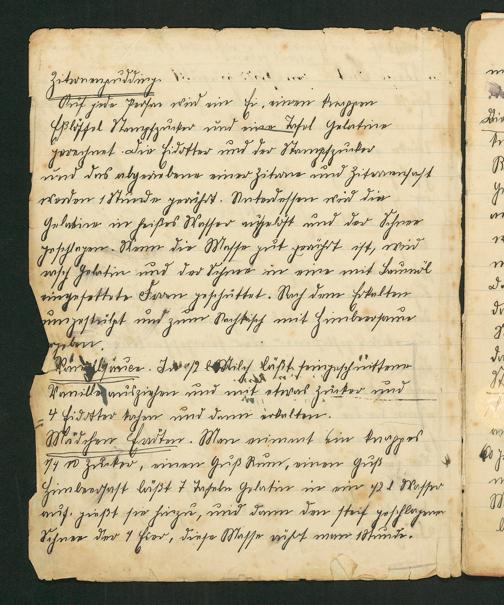 Zitronenpudding.
Auf jede Person wird ein Ei, einen knappen
Eßlöffel Stampfzucker und eine Tafel Gelatine
gerechnet. Die Eidotter und der Stampfzucker
und das abgeriebene einer Zitrone und Zitronensaft
werden 1 Stunde gerührt. Unterdessen wird die
Gelatine in heißes Wasser aufgelöst und der Schnee
geschlagen. Wenn die Masse gut gerührt ist, wird
rasch Gelatin und der Schnee in eine mit Baumöl
eingefettete Form geschüttet. Nach dem Erkalten
umgestülpt und zum Nachtisch mit Himbeersauce
gegeben.
In Milch läßt feingeschnittene
Vanille ausziehen und mit etwas Zucker und
4 Eidotter kochen und dann erkalten.
Mädchen Man nimmt ein knappes
1/4 Zucker, einen Guß Rum, einen Guß
Himbeersaft läßt 7 Tafeln Gelatin in ein l Wasser
auf. gießt sie hinzu, und dann den steif geschlagenen
Schnee der 4 Eier, diese Masse rührt man 1 Stunde.